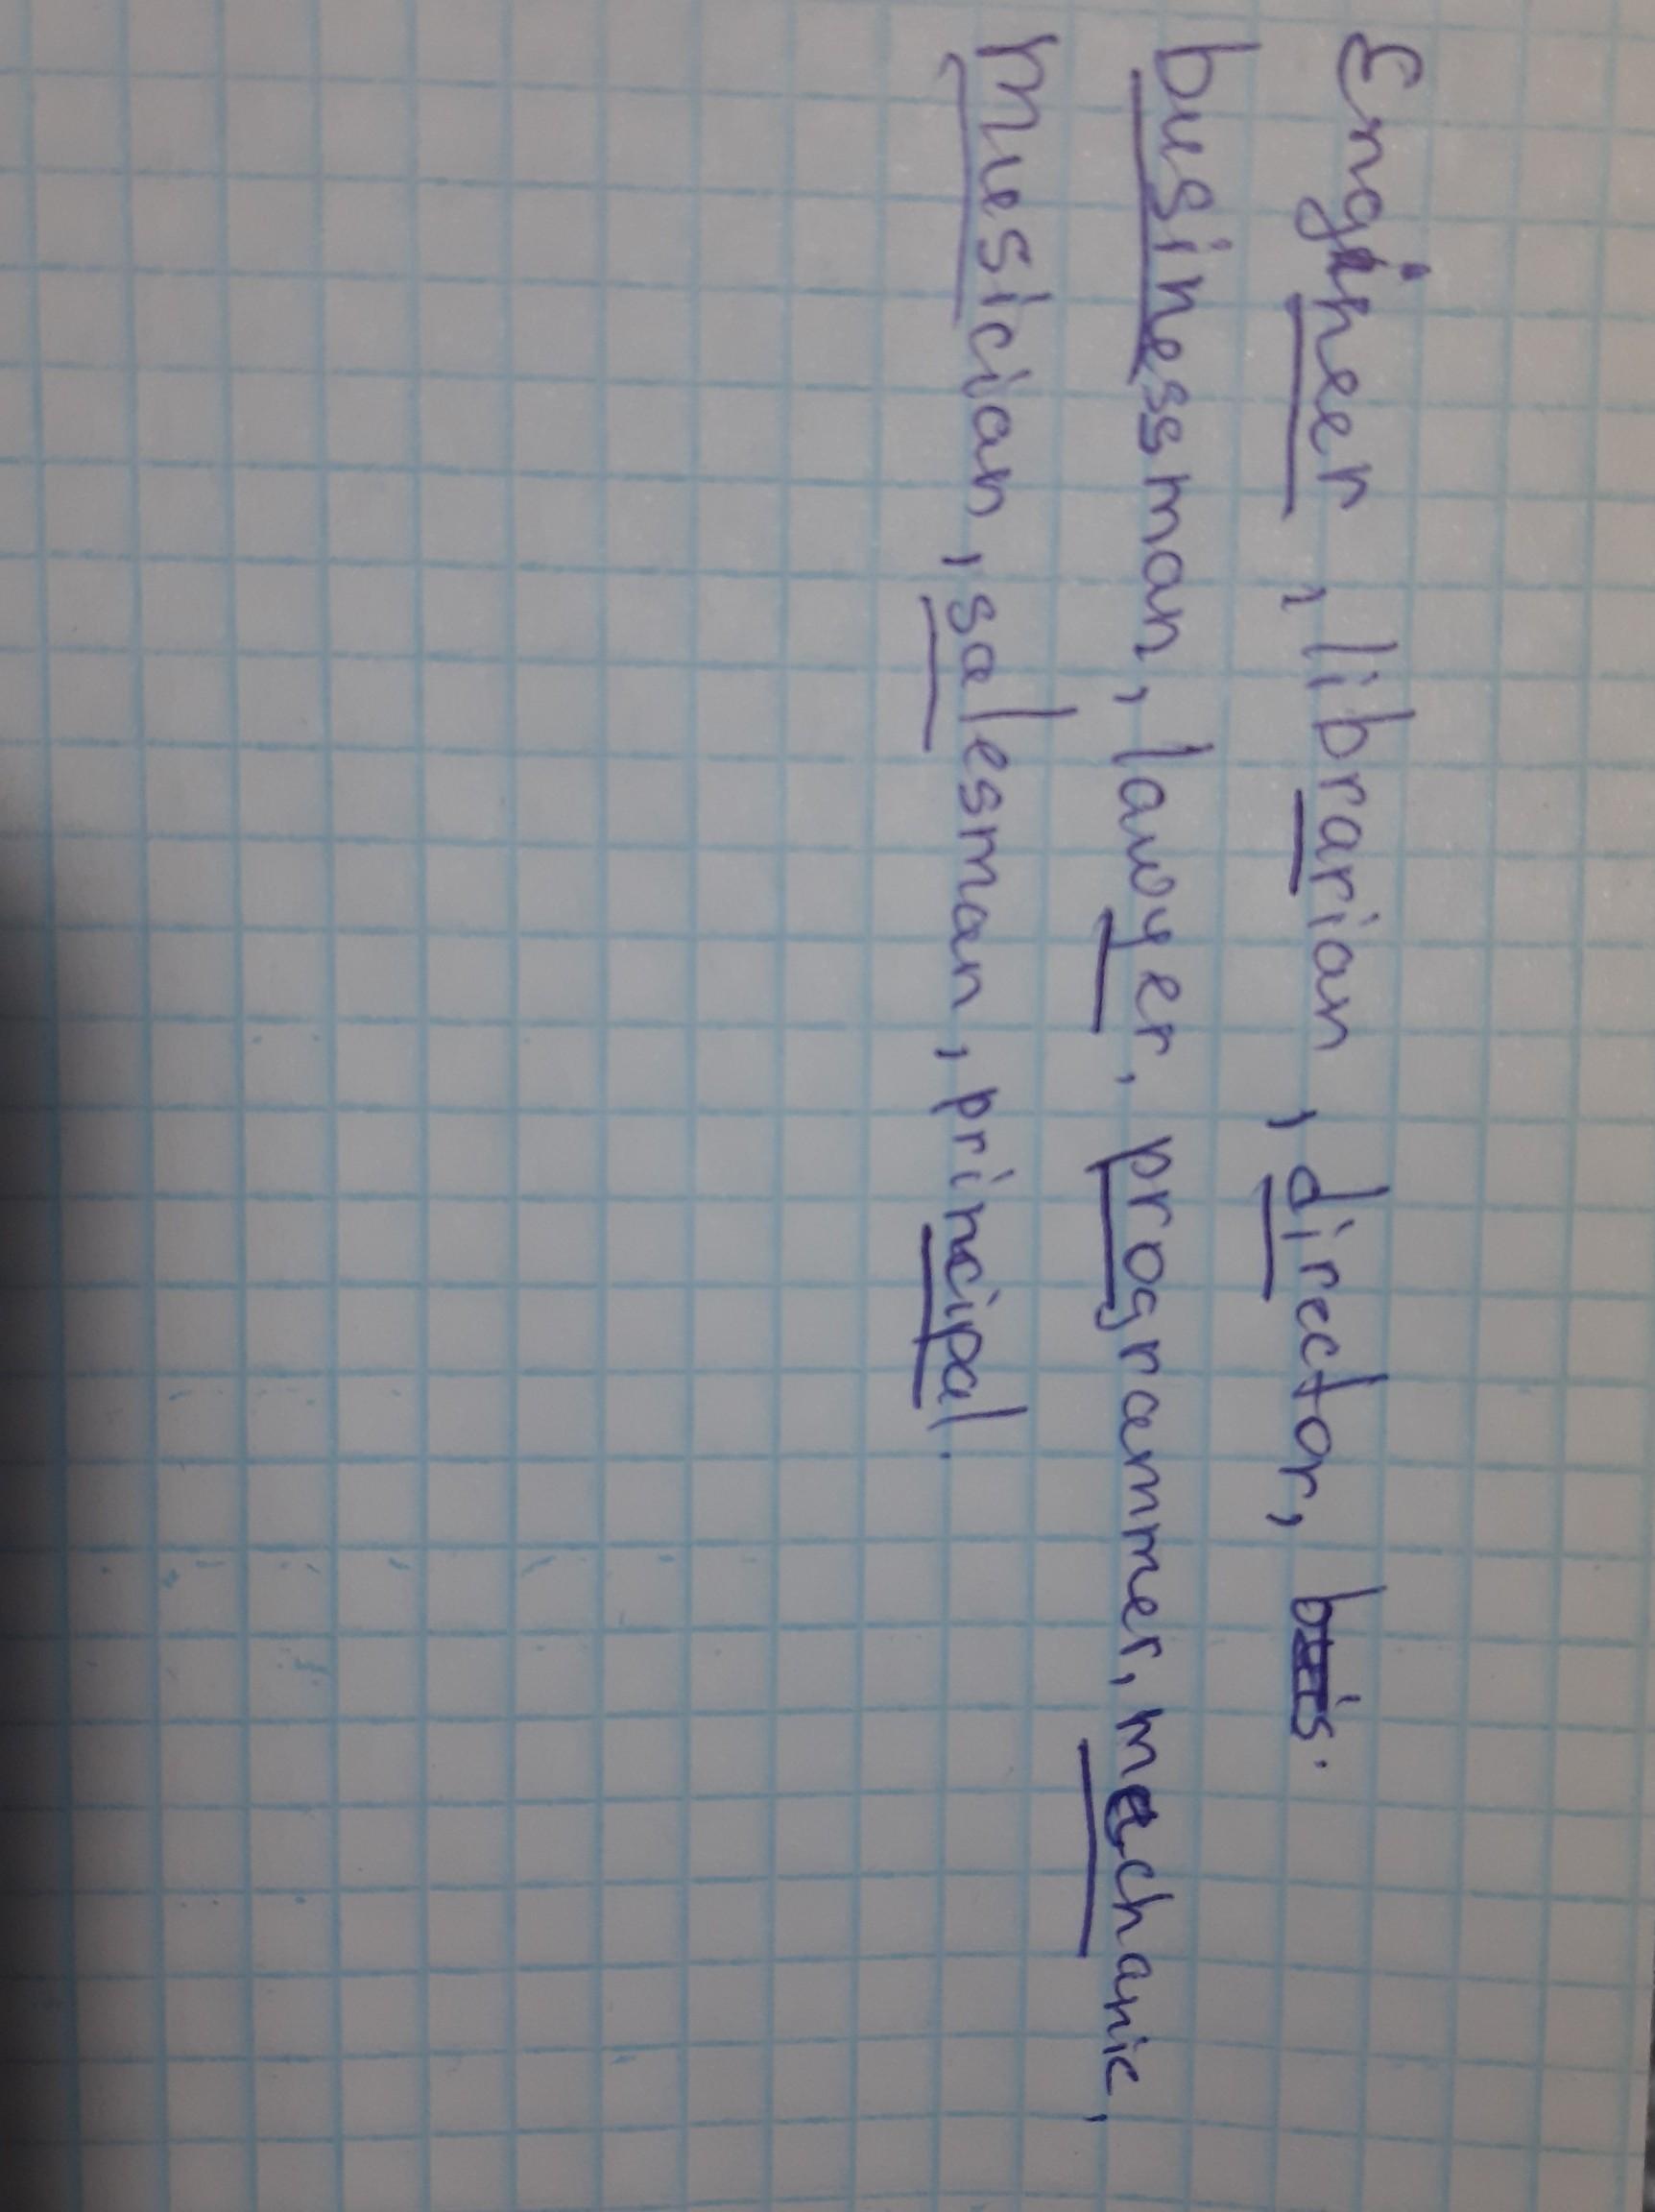 Enginer, librarian, director,
businessman, lawyer, programmer, mechanic,
Musician, salesman, principal.